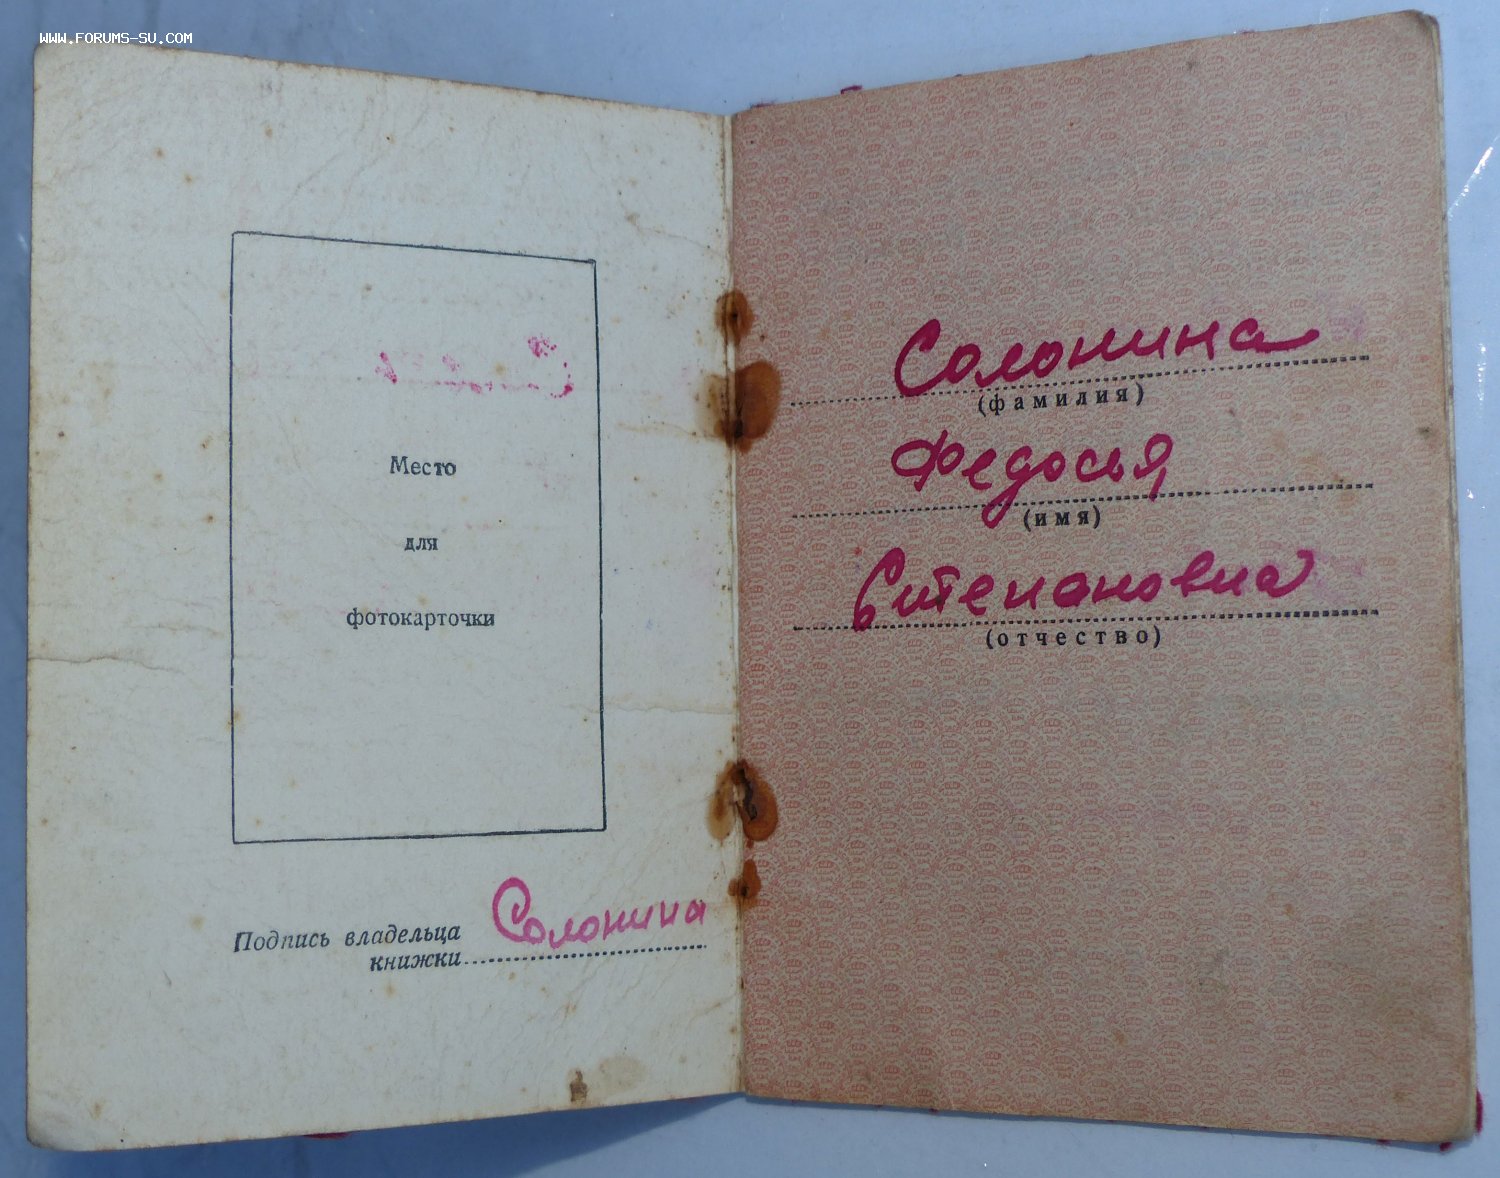 WWW.FORUMS-SU.COM
Место
для
фотокарточки
Подпись владельца
книжки
Солонина
Солонина
(фамилия)
Федосья
(имя)
Степановна
(отчество)